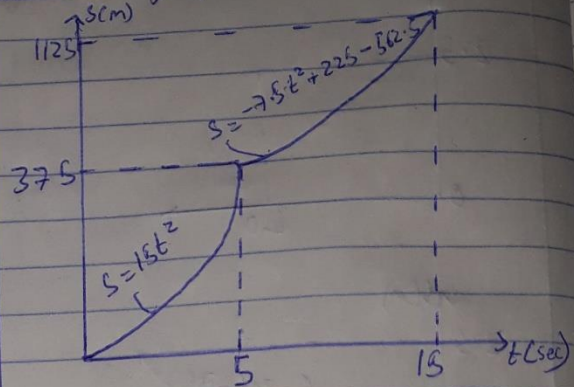 S(m)
1125
S = -7.5t² + 225 - 562.5
375
S = 15t²
5
15
t(sec)